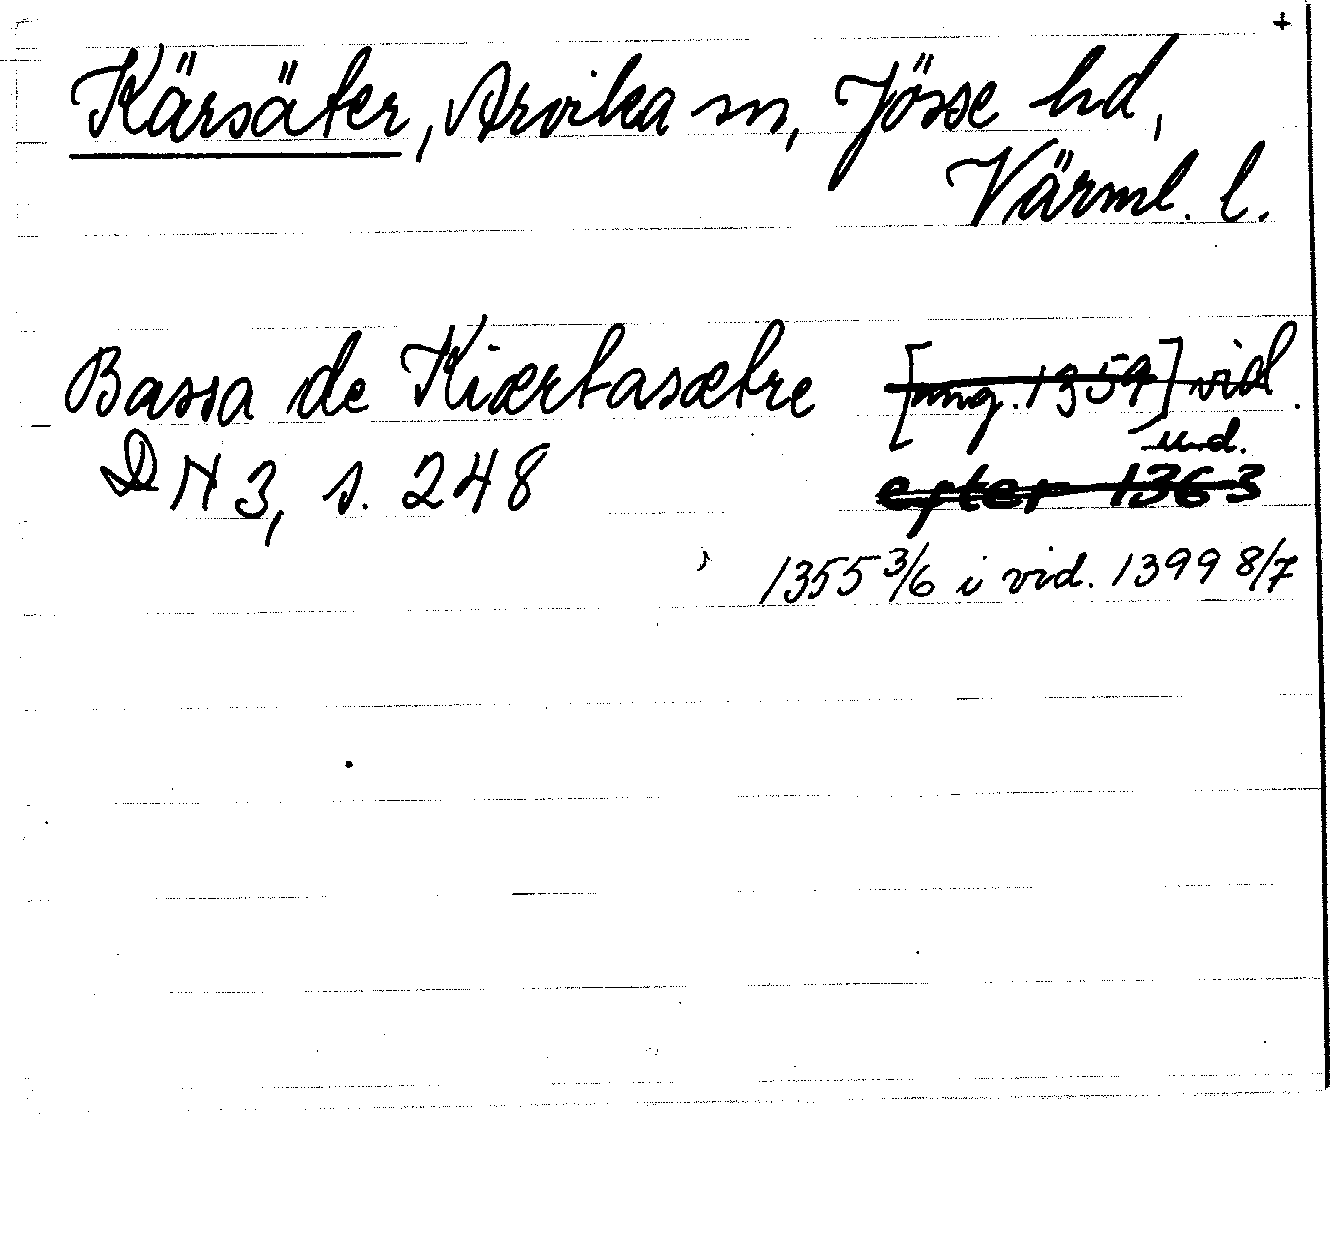 +
Kärsäter, Arvika sn, Jösse hd,
Värml. l.
Bassa de Kiærtasætre [omg. 1359] vid.
und.
DN 3, s. 248 efter 1363
1355 3/6 i vid. 1399 8/7